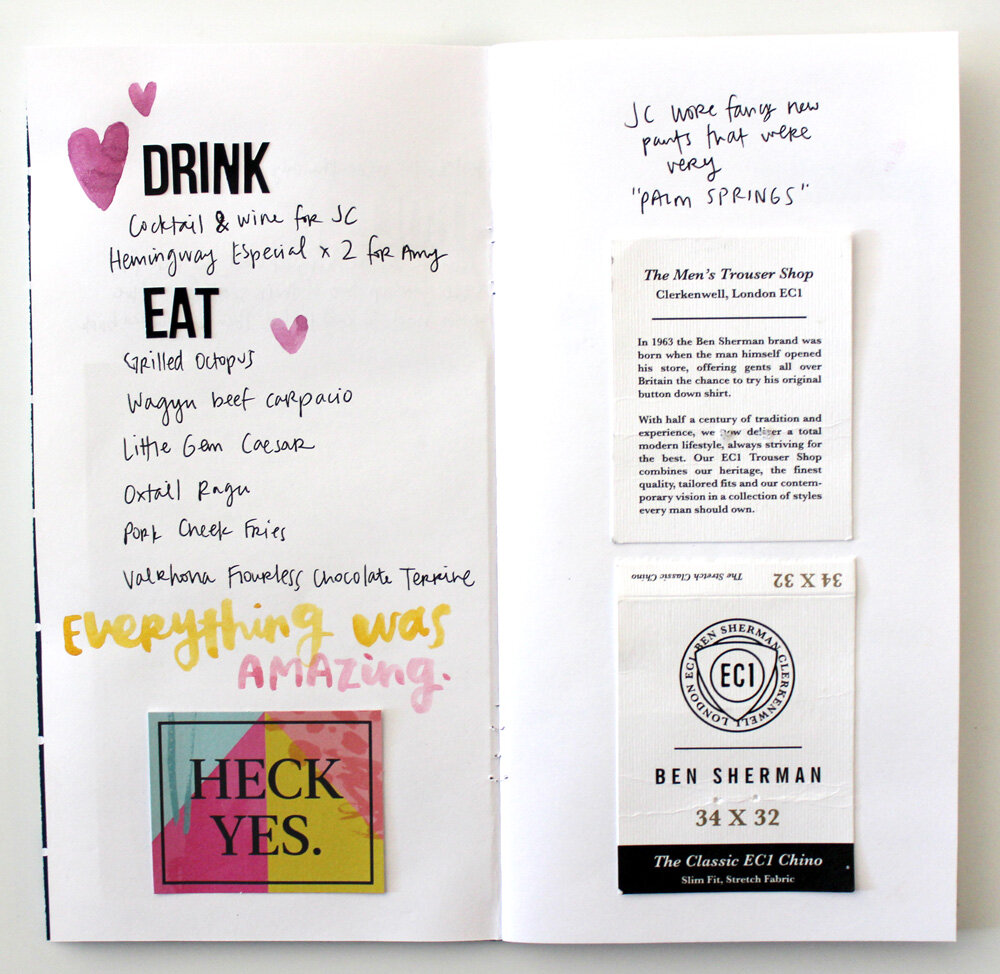 DRINK
Cocktail & wine for JC
Hemingway Especial x 2 for Amy
EAT
Grilled Octopus
Wagyu beef carpacio
Little Gem Caesar
Oxtail Ragu
Pork Cheek Fries
Valrhona Flourless Chocolate Terrine
Everything was
AMAzing.
HECK
YES.
JC wore fancy new
pants that were
very
"PALM SPRINGS"
The Men's Trouser Shop
Clerkenwell, London EC1
In 1963 the Ben Sherman brand was
born when the man himself opened
his store, offering gents all over
Britain the chance to try his original
button down shirt.
With half a century of tradition and
experience, we now deliver a total
modern lifestyle, always striving for
the best. Our EC1 Trouser Shop
combines our heritage, the finest
quality, tailored fits and our contem-
porary vision in a collection of styles
every man should own.
The Stretch Classic Chino 34 X 32
BEN SHERMAN CLERKENWELL LONDON EC1
EC1
BEN SHERMAN
34 X 32
The Classic EC1 Chino
Slim Fit, Stretch Fabric